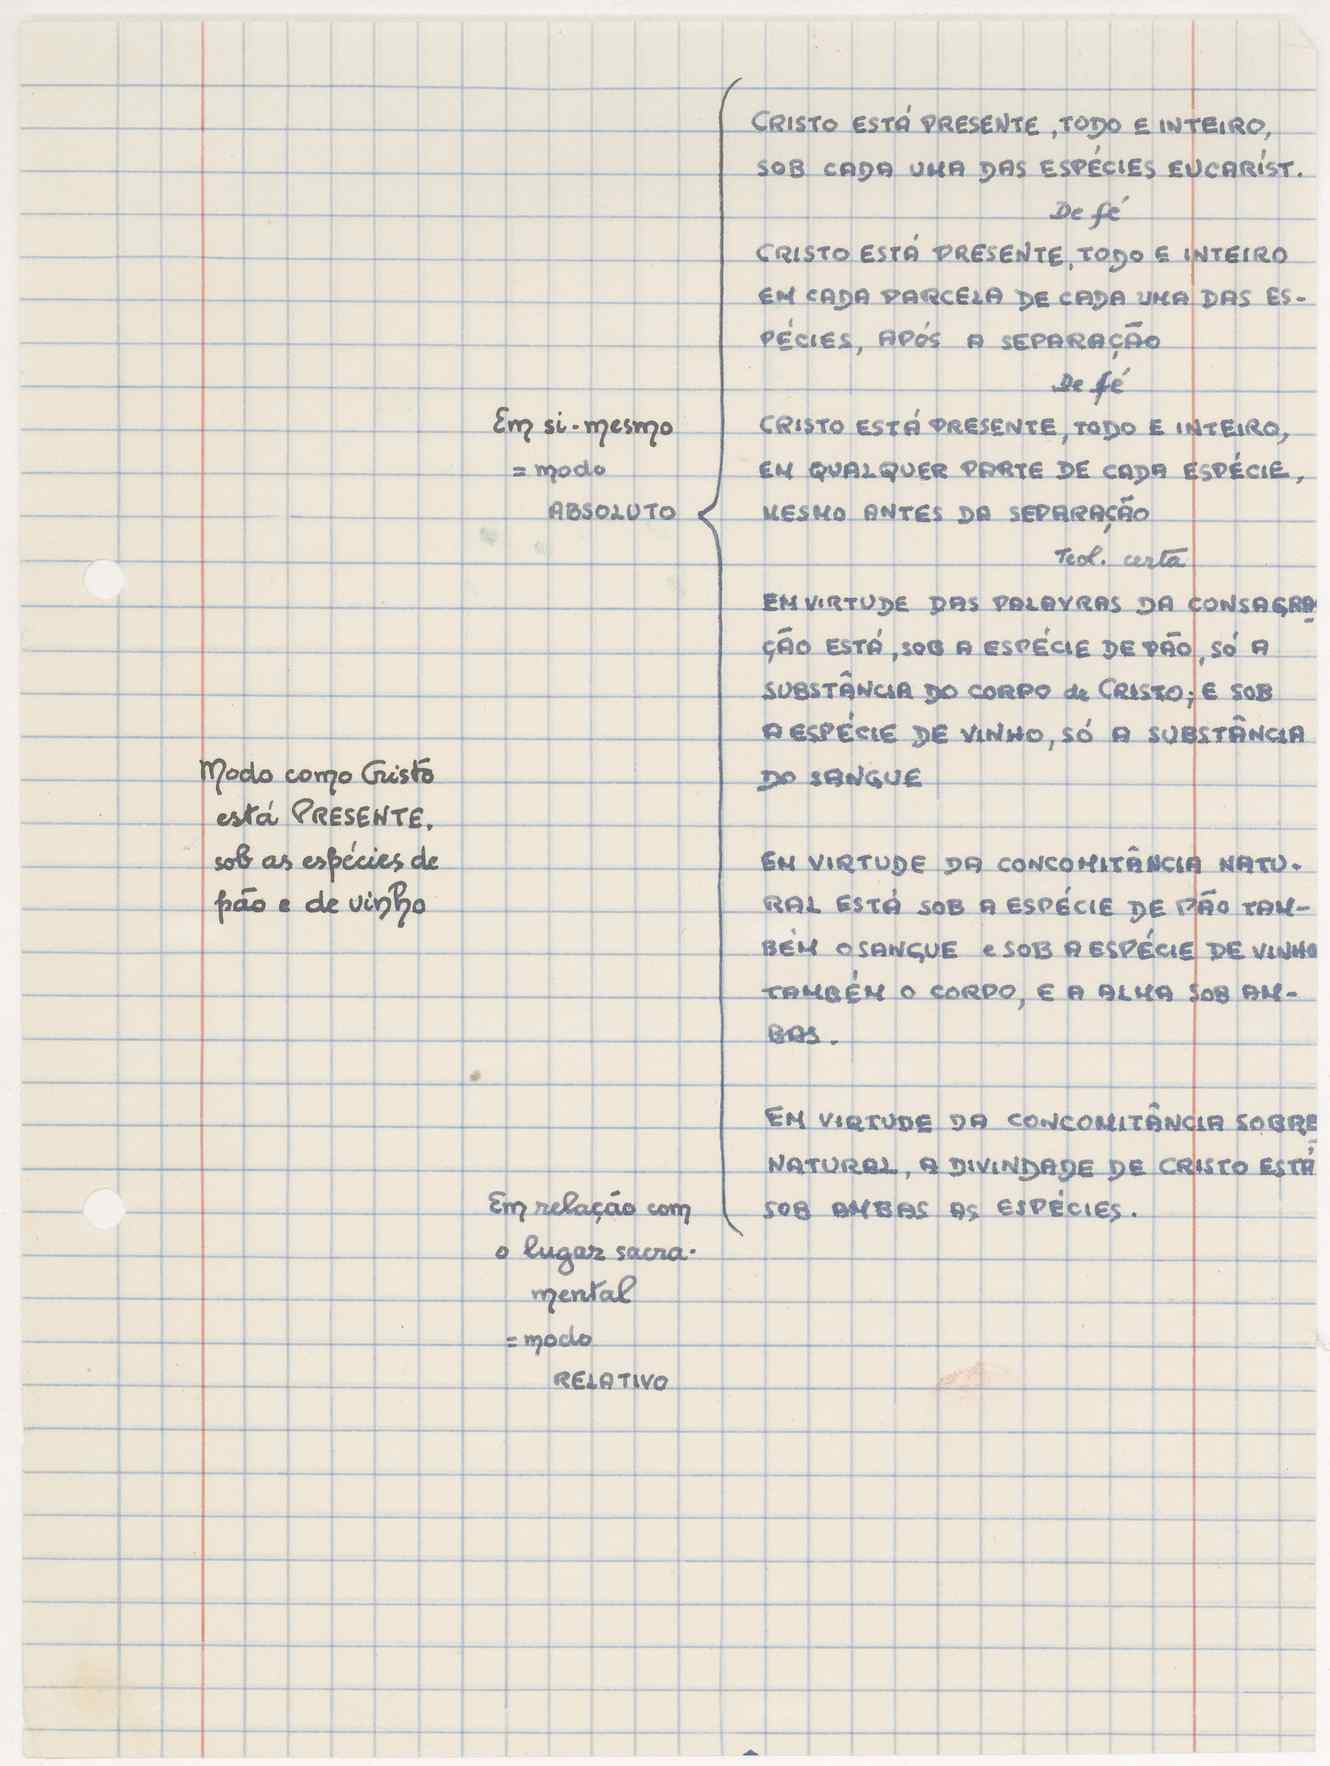 Modo como Cristo
está PRESENTE,
sob as espécies de
pão e de vinho
Em si-mesmo
= modo
ABSOLUTO
CRISTO ESTÁ PRESENTE, TODO E INTEIRO,
SOB CADA UMA DAS ESPÉCIES EUCARÍST.
De fé
CRISTO ESTÁ PRESENTE, TODO E INTEIRO
EM CADA PARCELA DE CADA UMA DAS ES-
PÉCIES, APÓS A SEPARAÇÃO
De fé
CRISTO ESTÁ PRESENTE, TODO E INTEIRO,
EM QUALQUER PARTE DE CADA ESPÉCIE,
MESMO ANTES DA SEPARAÇÃO
Teol. certa
EM VIRTUDE DAS PALAVRAS DA CONSAGRA-
ÇÃO ESTÁ, SOB A ESPÉCIE DE PÃO, SÓ A
SUBSTÂNCIA DO CORPO de CRISTO; E SOB
A ESPÉCIE DE VINHO, SÓ A SUBSTÂNCIA
DO SANGUE
EM VIRTUDE DA CONCOMITÂNCIA NATU-
RAL ESTÁ SOB A ESPÉCIE DE PÃO TAM-
BÉM O SANGUE e SOB A ESPÉCIE DE VINHO
TAMBÉM O CORPO, E A ALMA SOB AM-
BAS.
EM VIRTUDE DA CONCOMITÂNCIA SOBRE-
NATURAL, A DIVINDADE DE CRISTO ESTÁ
SOB AMBAS AS ESPÉCIES.
Em relação com
o lugar sacra-
mental
= modo
RELATIVO